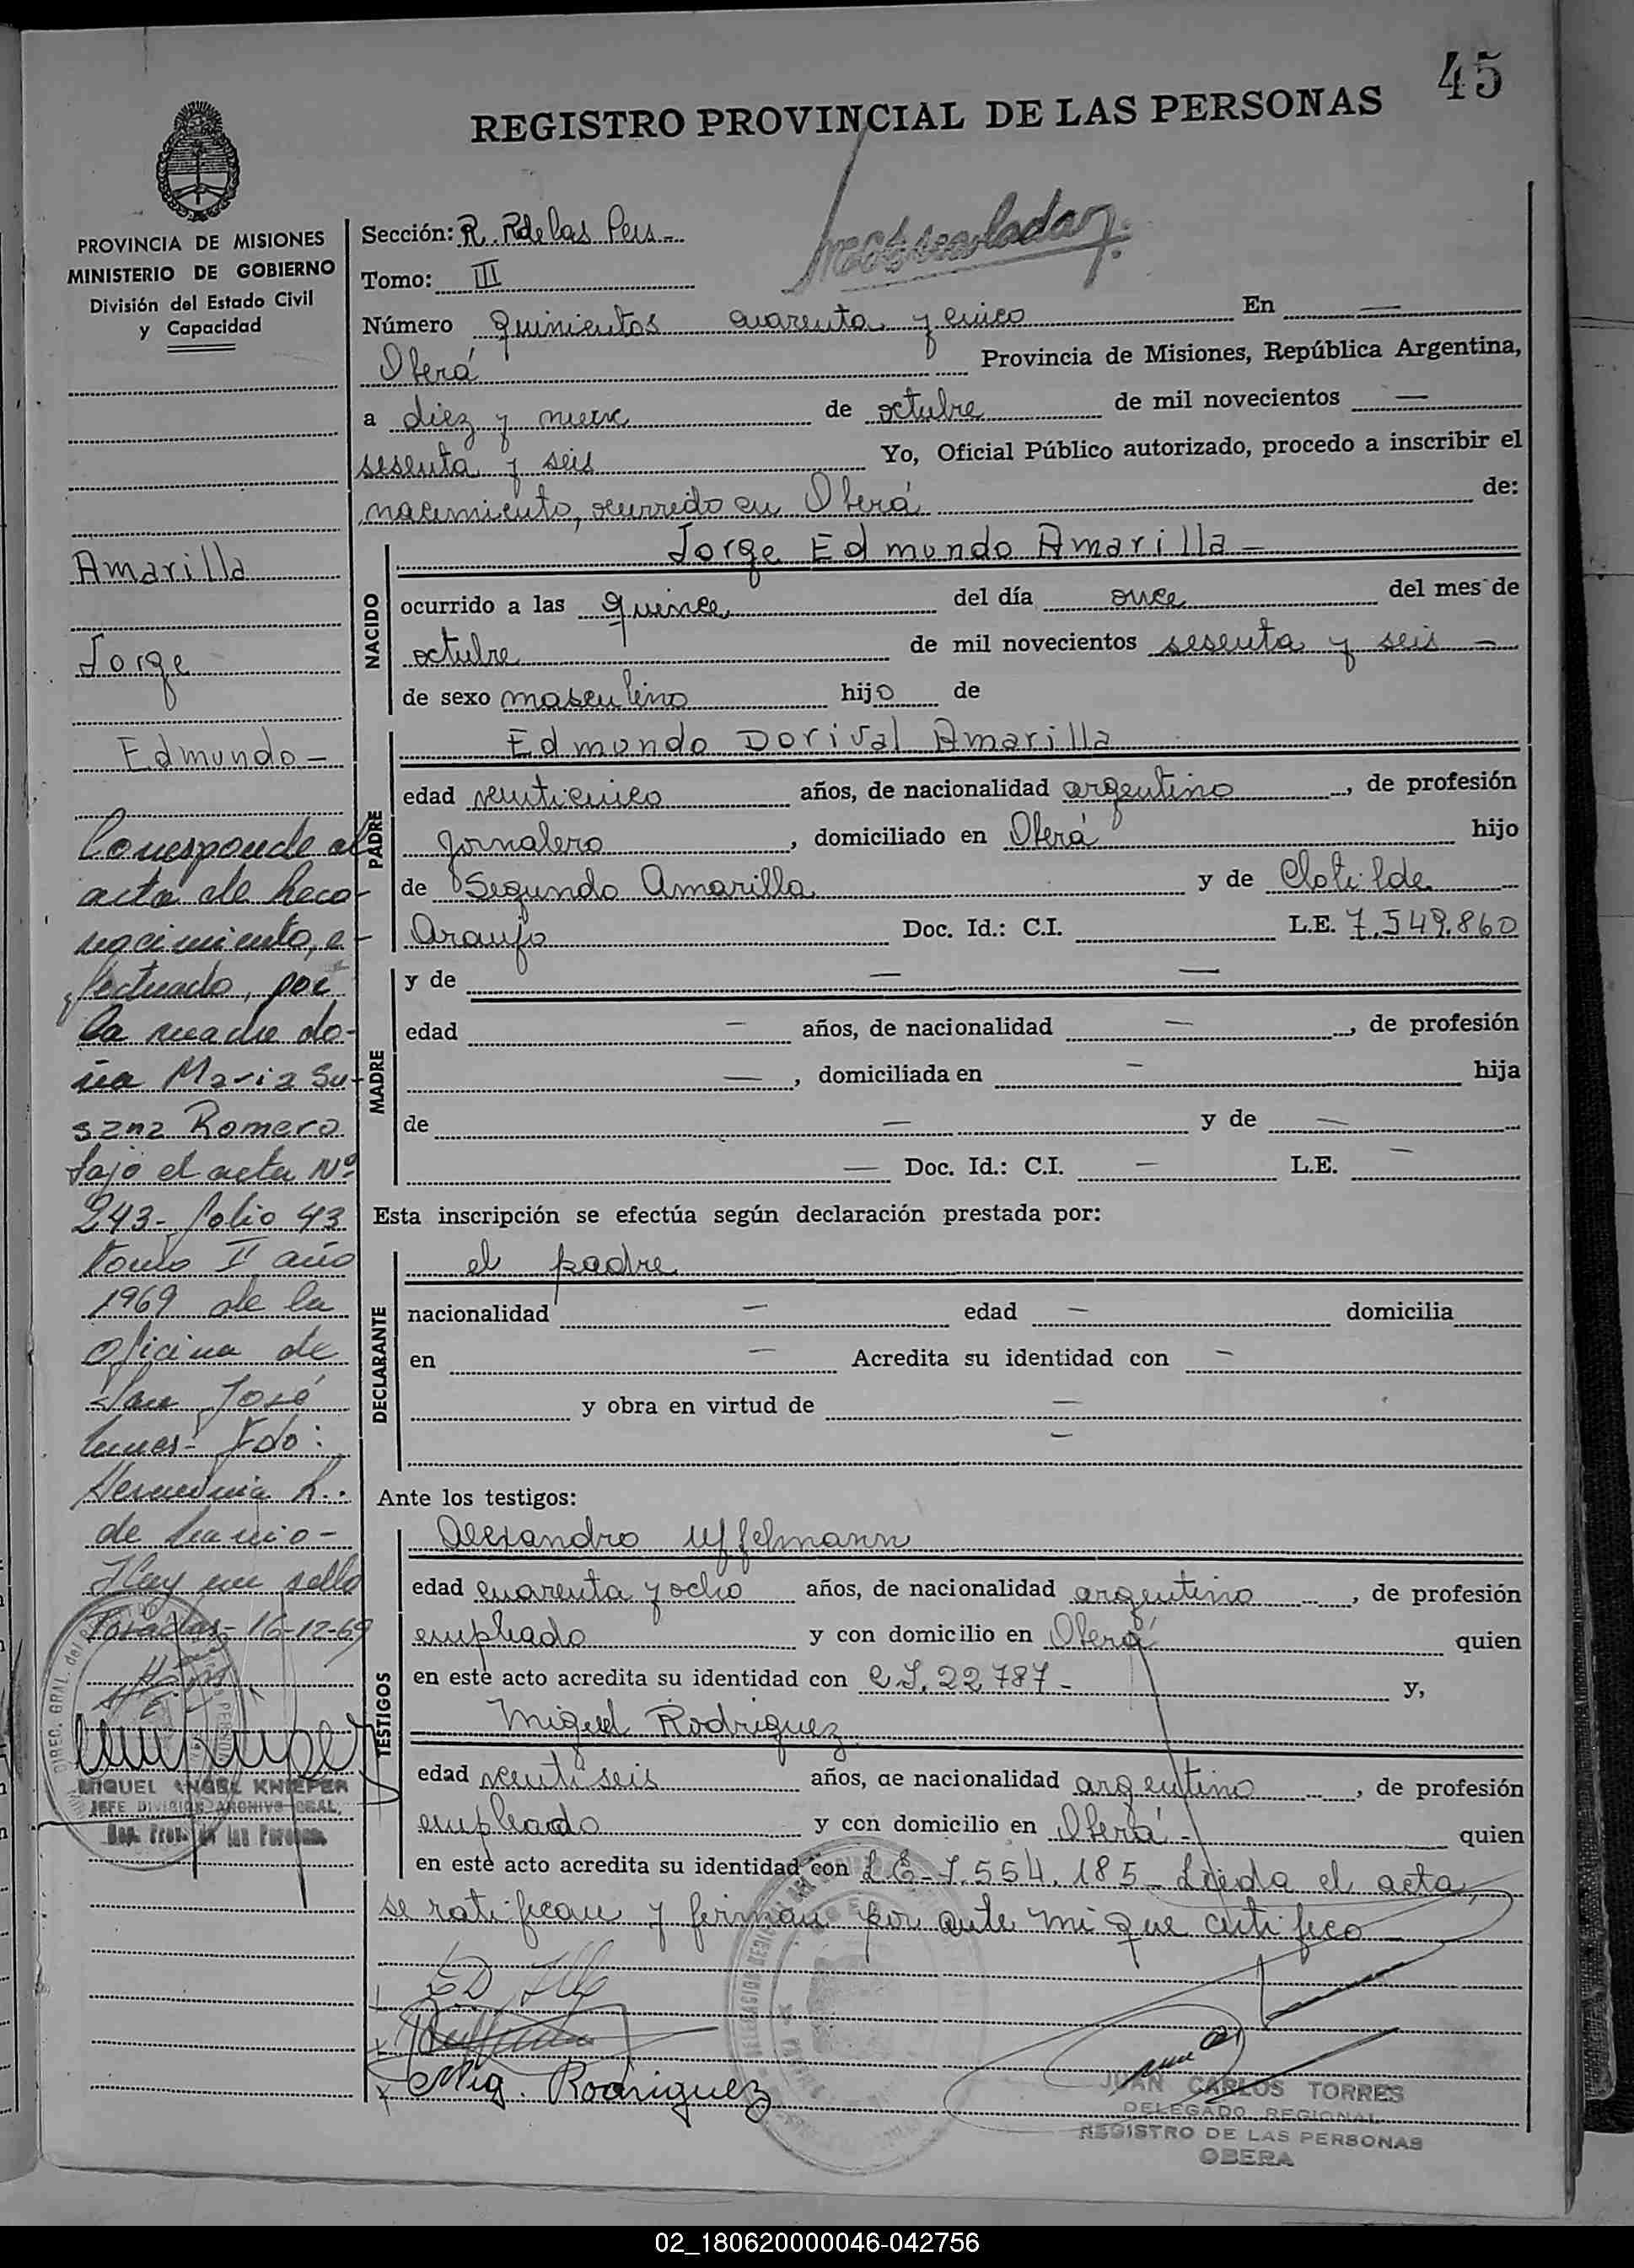 45
REGISTRO PROVINCIAL DE LAS PERSONAS
PROVINCIA DE MISIONES
MINISTERIO DE GOBIERNO
División del Estado Civil
y Capacidad
Amarilla
Jorge
Edmundo -
Corresponde al
acta de Reco-
nocimiento, e-
fectuado, por
la madre do-
ña Maria Su-
sana Romero
bajo el acta Nº
243- folio 43
tomo II año
1969 de la
oficina de
San José
Fdo:
Herminia
de
Hay un sello
Posadas- 16-12-69
MIGUEL ANGEL KNIEFER
JEFE DIVISION ARCHIVO GRAL.
Reg. Prov. de las Personas
Sección: R. P. de las Pers -
Tomo: III
Número quinientos cuarenta y cinco En —
Oberá Provincia de Misiones, República Argentina,
a diez y nueve de octubre de mil novecientos —
sesenta y seis Yo, Oficial Público autorizado, procedo a inscribir el
nacimiento, ocurrido en Oberá de:
NACIDO
Jorge Edmundo Amarilla —
ocurrido a las quince del día once del mes de
octubre de mil novecientos sesenta y seis —
de sexo masculino hijo de
PADRE
Edmundo Dorival Amarilla
edad venticinco años, de nacionalidad argentino, de profesión
jornalero, domiciliado en Oberá hijo
de Segundo Amarilla y de Clotilde
Araujo Doc. Id.: C.I. L.E. 7.549.860
MADRE
y de — —
edad — años, de nacionalidad —, de profesión
—, domiciliada en — hija
de — y de —
— Doc. Id.: C.I. — L.E. —
Esta inscripción se efectúa según declaración prestada por:
DECLARANTE
el padre
nacionalidad — edad — domicilia
en — Acredita su identidad con —
y obra en virtud de —
—
Ante los testigos:
TESTIGOS
Alejandro Uffelmann
edad cuarenta y ocho años, de nacionalidad argentino, de profesión
empleado y con domicilio en Oberá quien
en este acto acredita su identidad con C.I. 22.787 - y,
Miguel Rodriguez
edad venti seis años, de nacionalidad argentino, de profesión
empleado y con domicilio en Oberá - quien
en este acto acredita su identidad con L.E. 7.554.185 - Leida el acta,
se ratifican y firman por ante mi que certifico
Mig. Rodriguez
JUAN CARLOS TORRES
DELEGADO REGIONAL
REGISTRO DE LAS PERSONAS
OBERA
02_180620000046-042756